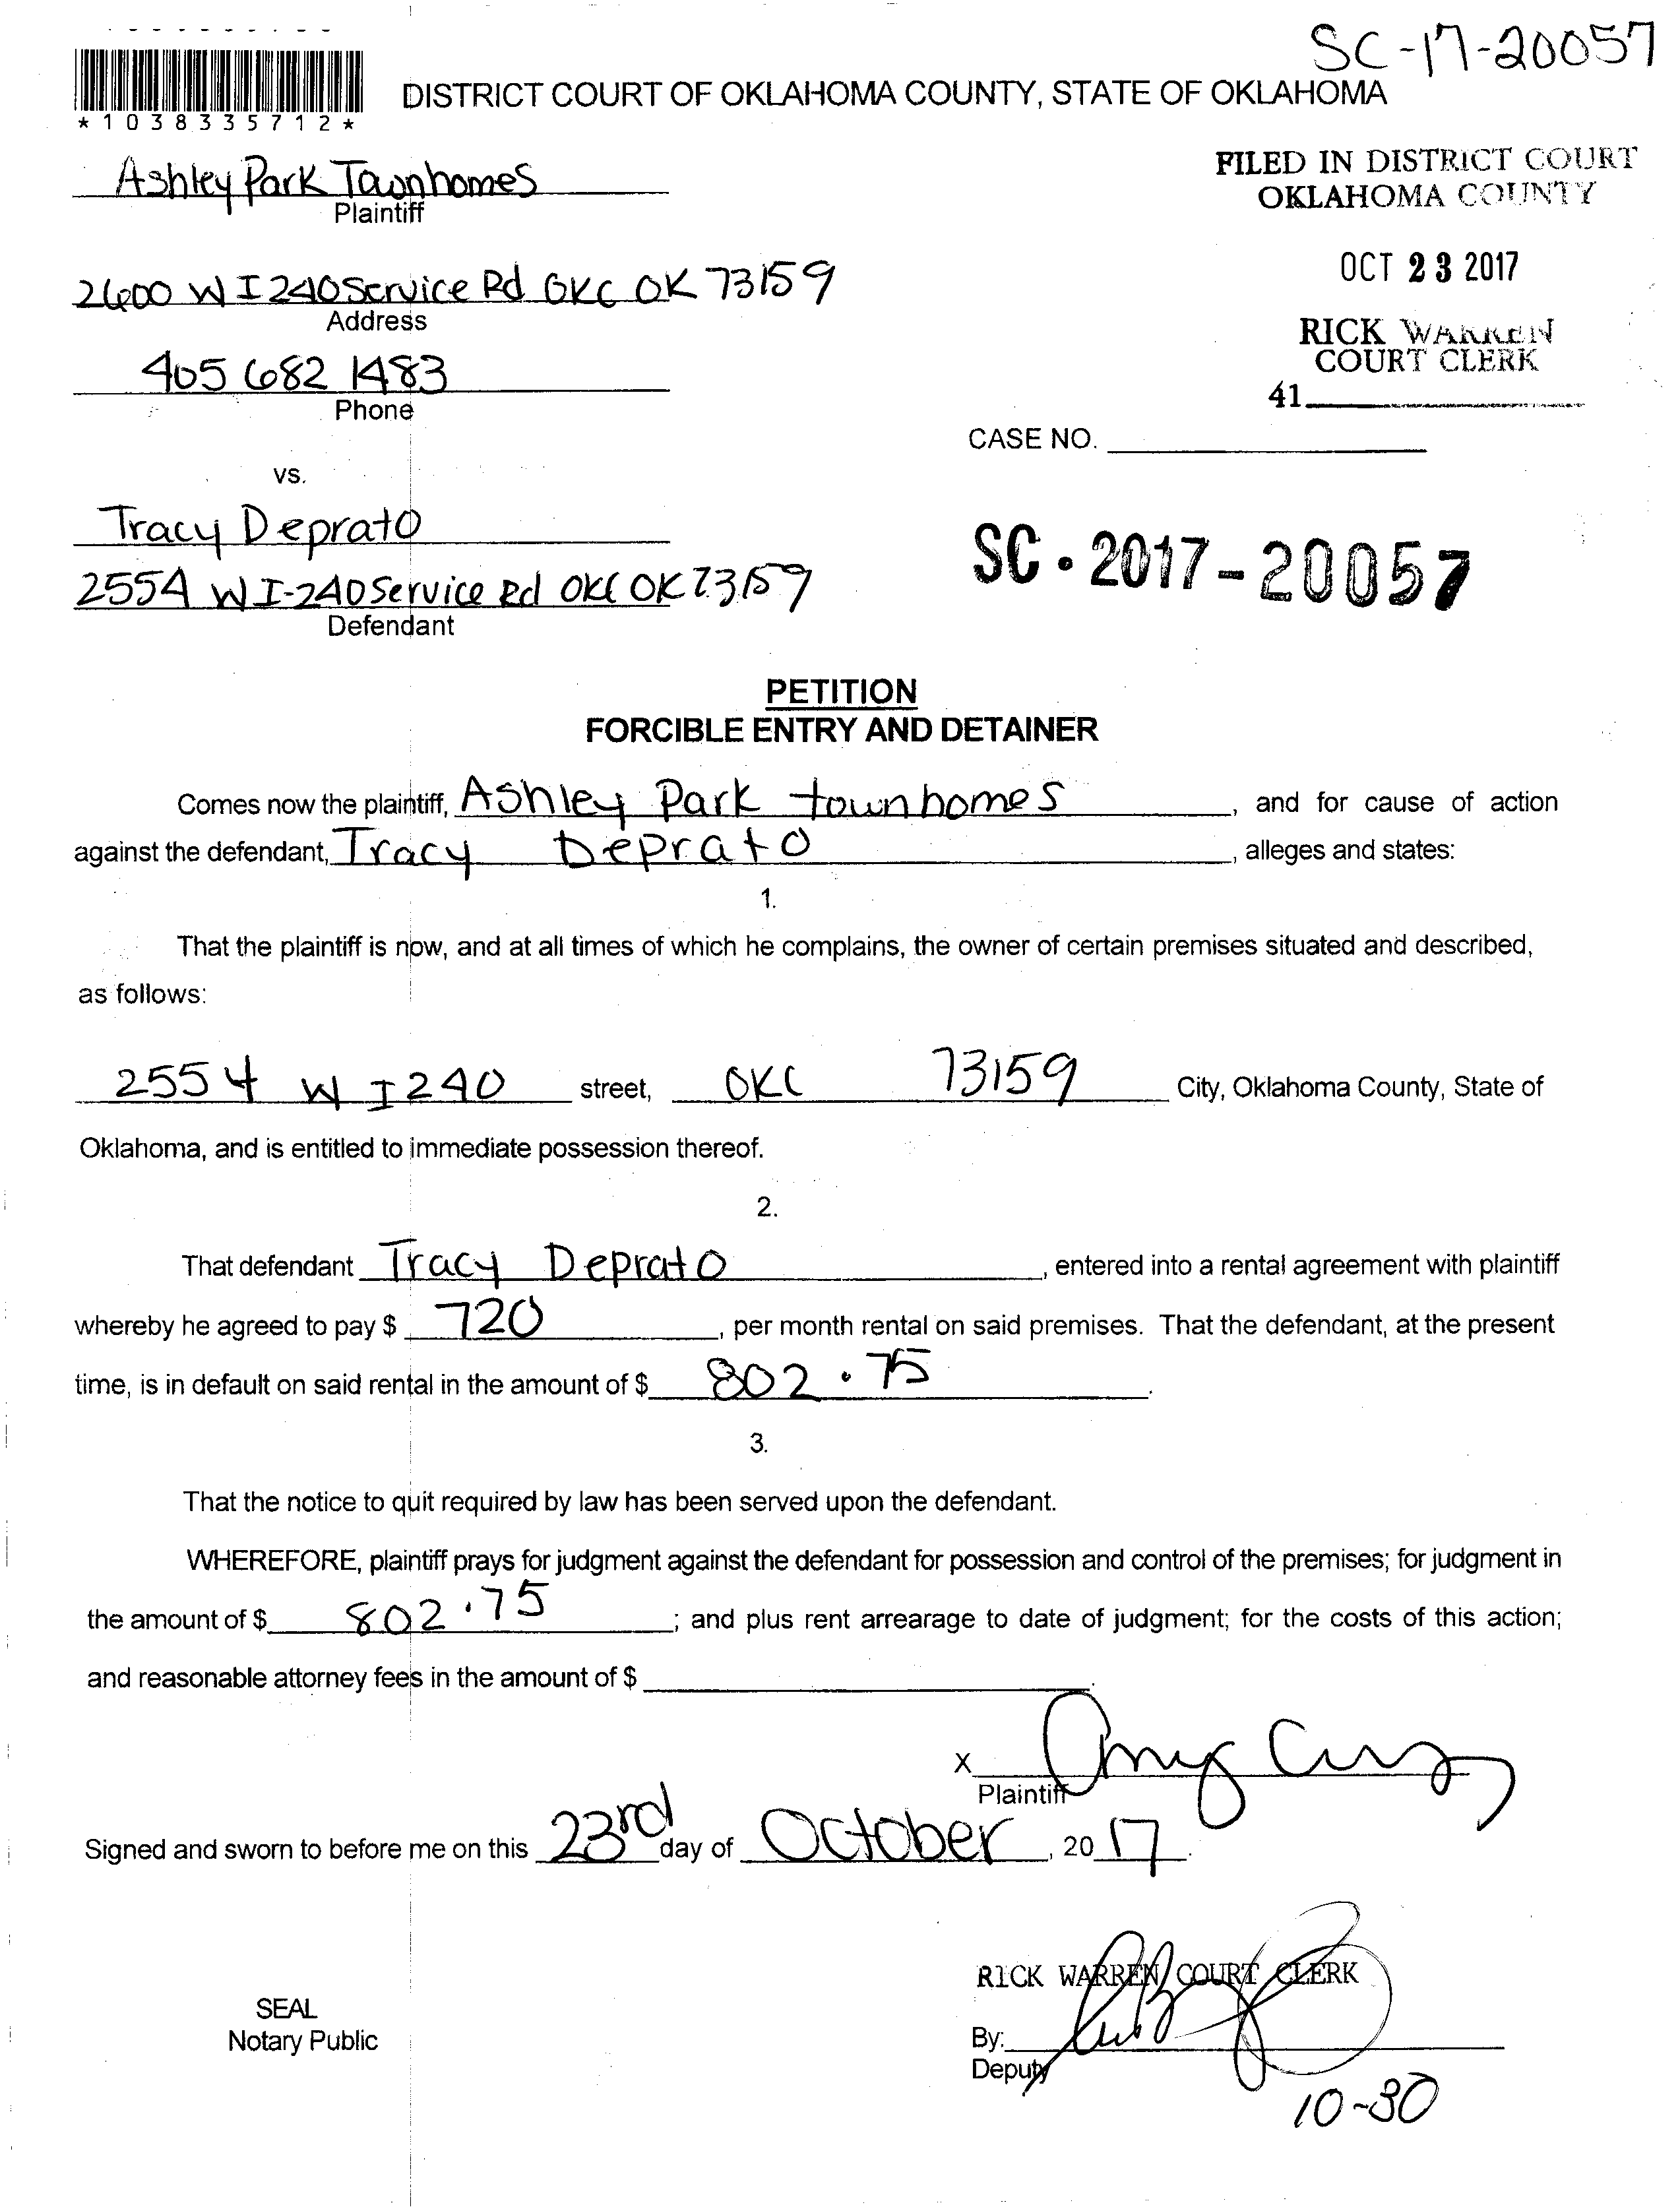 SC-17-20057
*1038335712*
DISTRICT COURT OF OKLAHOMA COUNTY, STATE OF OKLAHOMA
Ashley Park Townhomes
Plaintiff
FILED IN DISTRICT COURT
OKLAHOMA COUNTY
2600 W I 240 Service Rd OKC OK 73159
Address
OCT 23 2017
405 682 1483
Phone
RICK WARREN
COURT CLERK
41
CASE NO.
vs.
Tracy Deprato
2554 W I-240 Service Rd OKC OK 73159
Defendant
SC·2017-20057
PETITION
FORCIBLE ENTRY AND DETAINER
Comes now the plaintiff, Ashley Park townhomes, and for cause of action
against the defendant, Tracy Deprato, alleges and states:
1.
That the plaintiff is now, and at all times of which he complains, the owner of certain premises situated and described,
as follows:
2554 W I 240 street, OKC 73159 City, Oklahoma County, State of
Oklahoma, and is entitled to immediate possession thereof.
2.
That defendant Tracy Deprato, entered into a rental agreement with plaintiff
whereby he agreed to pay $ 720, per month rental on said premises. That the defendant, at the present
time, is in default on said rental in the amount of $ 802.75.
3.
That the notice to quit required by law has been served upon the defendant.
WHEREFORE, plaintiff prays for judgment against the defendant for possession and control of the premises; for judgment in
the amount of $ 802.75; and plus rent arrearage to date of judgment; for the costs of this action;
and reasonable attorney fees in the amount of $ .
X
Plaintiff
Signed and sworn to before me on this 23rd day of October, 2017.
RICK WARREN COURT CLERK
SEAL
Notary Public
By:
Deputy
10-30